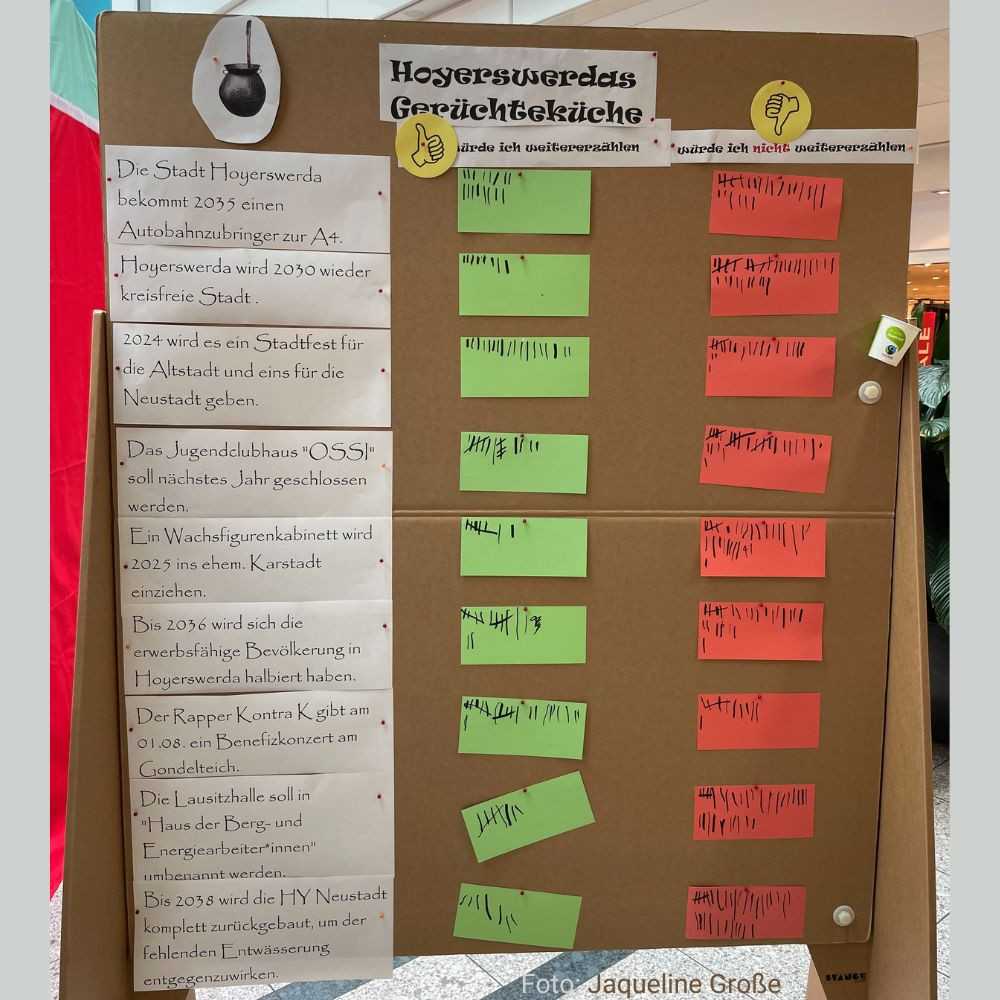 Hoyerswerdas
Gerüchteküche
würde ich weitererzählen
würde ich nicht weitererzählen
Die Stadt Hoyerswerda
bekommt 2035 einen
Autobahnzubringer zur A4.
Hoyerswerda wird 2030 wieder
kreisfreie Stadt .
2024 wird es ein Stadtfest für
die Altstadt und eins für die
Neustadt geben.
Das Jugendclubhaus "OSSI"
soll nächstes Jahr geschlossen
werden.
Ein Wachsfigurenkabinett wird
2025 ins ehem. Karstadt
einziehen.
Bis 2036 wird sich die
erwerbsfähige Bevölkerung in
Hoyerswerda halbiert haben.
Der Rapper Kontra K gibt am
01.08. ein Benefizkonzert am
Gondelteich.
Die Lausitzhalle soll in
"Haus der Berg- und
Energiearbeiter*innen"
umbenannt werden.
Bis 2038 wird die HY Neustadt
komplett zurückgebaut, um der
fehlenden Entwässerung
entgegenzuwirken.
SALE
STANGE
Foto: Jaqueline Große